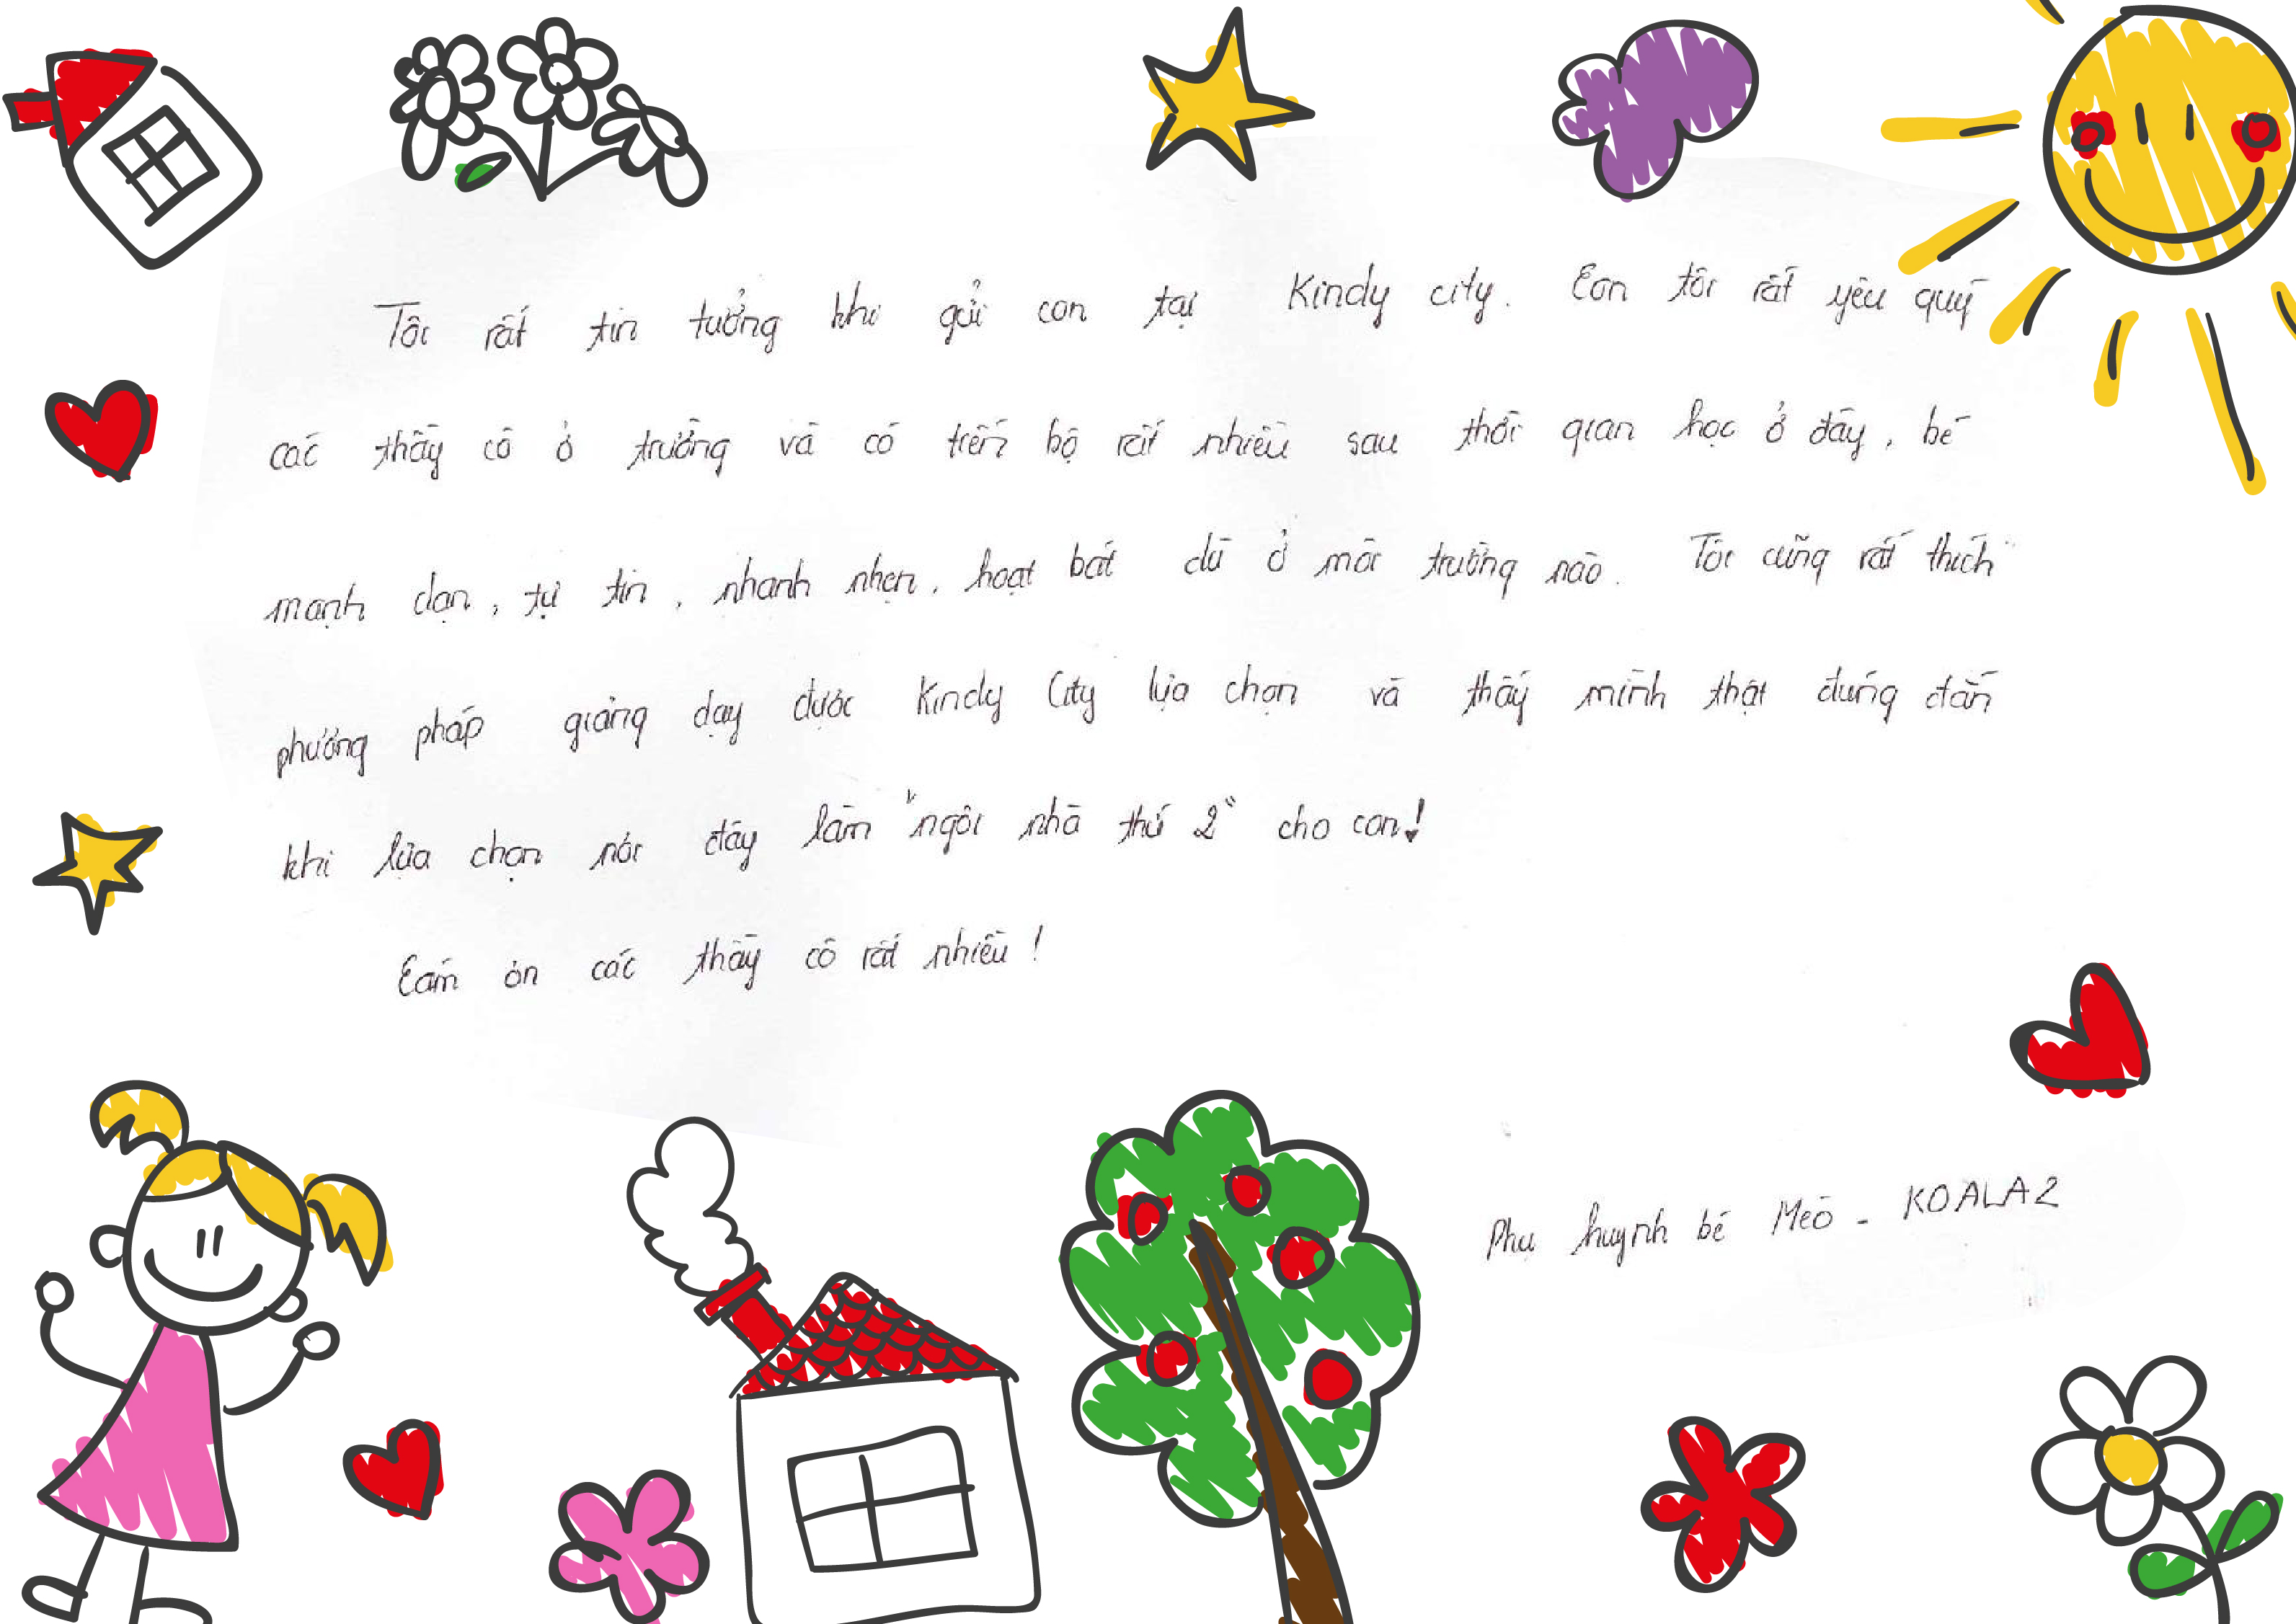 Tôi rất tin tưởng khi gửi con tại Kindy city. Con tôi rất yêu quý
các thầy cô ở trường và có tiến bộ rất nhiều sau thời gian học ở đây, bé
mạnh dạn, tự tin, nhanh nhẹn, hoạt bát dù ở môi trường nào. Tôi cũng rất thích
phương pháp giảng dạy được Kindy City lựa chọn và thấy mình thật đúng đắn
khi lựa chọn nơi đây làm "ngôi nhà thứ 2" cho con!
Cám ơn các thầy cô rất nhiều!
Phụ huynh bé Mèo - KOALA2